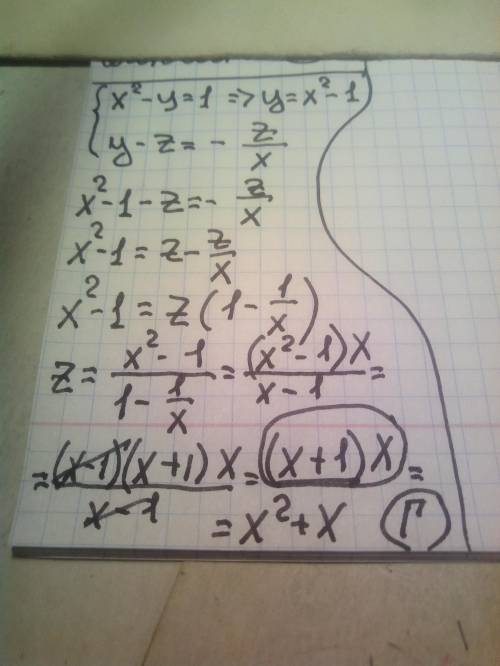 { x² - y = 1 => y = x² - 1
y - z = - z/x
x² - 1 - z = - z/x
x² - 1 = z - z/x
x² - 1 = z (1 - 1/x)
z = (x² - 1)/(1 - 1/x) = ((x² - 1) x)/(x - 1) =
= ((x-1)(x+1) x)/(x-1) = (x+1) x =
= x² + x Г